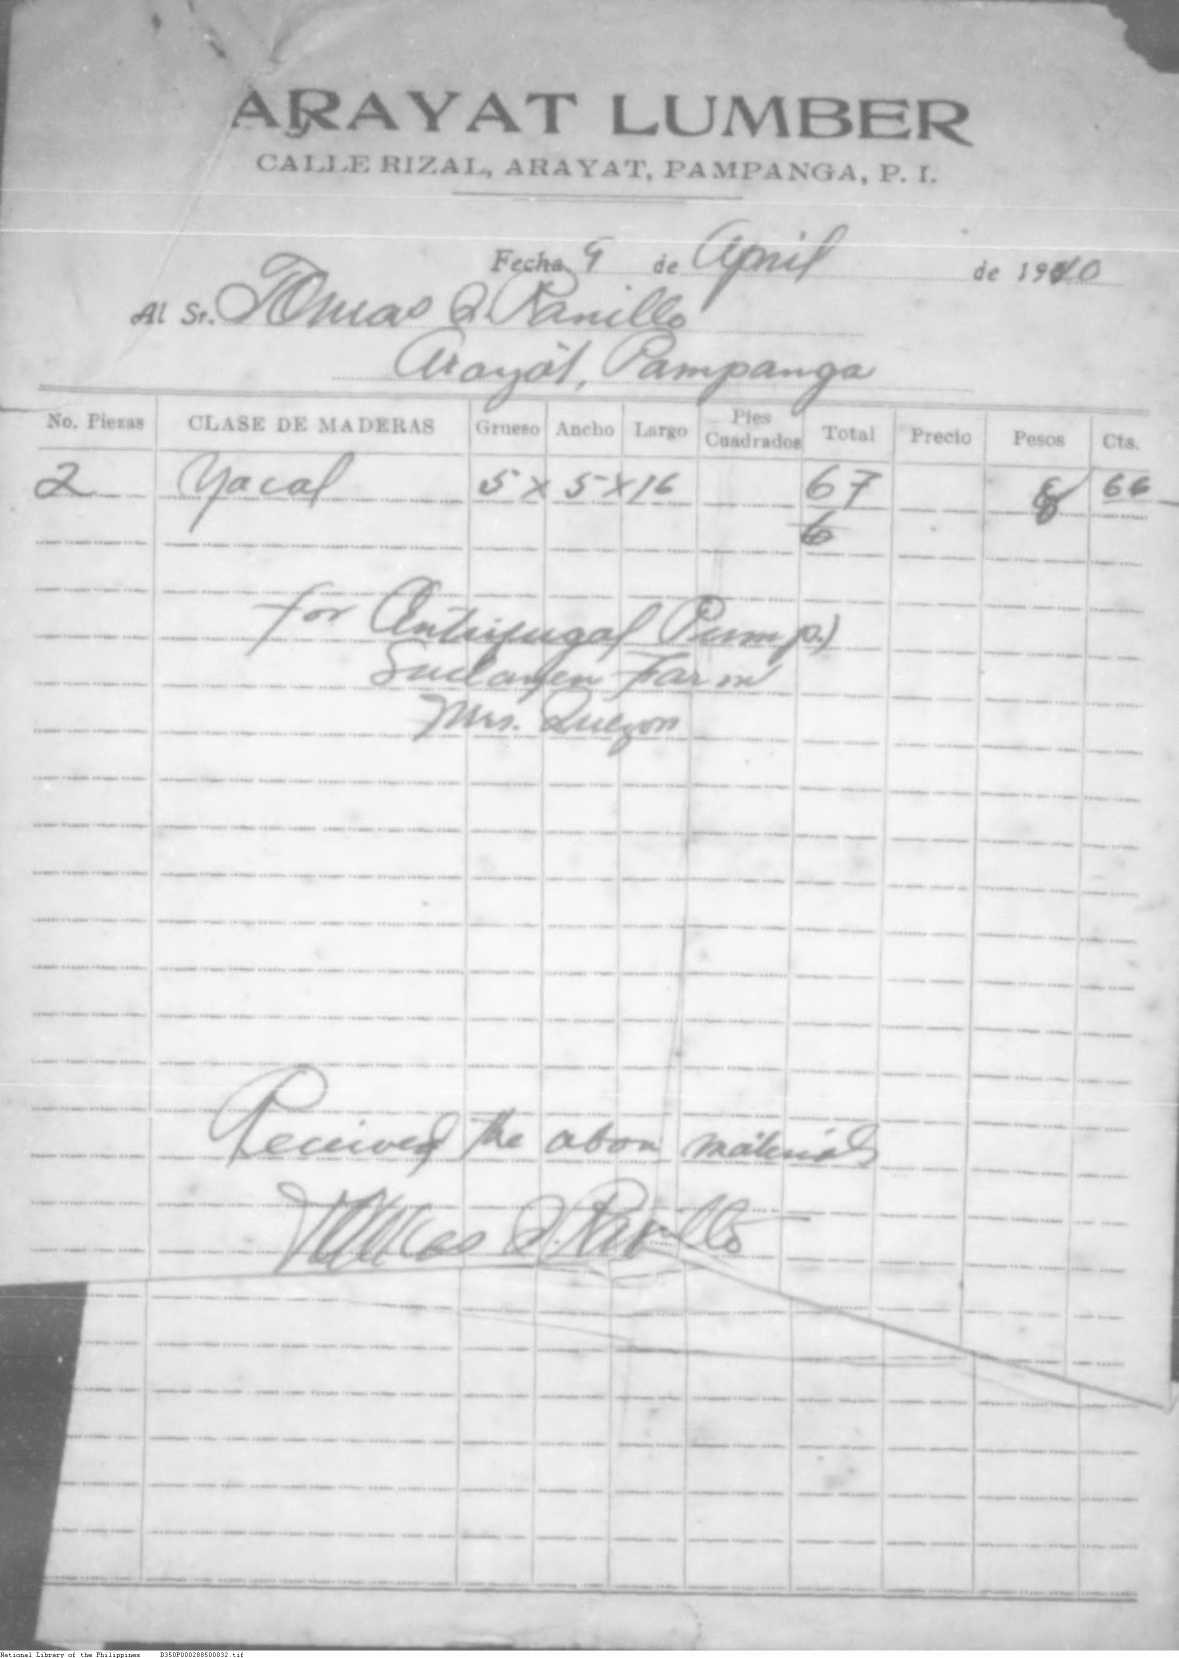 ARAYAT LUMBER
CALLE RIZAL, ARAYAT, PAMPANGA, P. I.
Fecha 9 de April de 1940
Al Sr. Tomas Q. Panillo
Arayat, Pampanga
No. Piezas CLASE DE MADERAS Grueso Ancho Largo Pies Cuadrados Total Precio Pesos Cts.
2 Yacal 5 x 5 x 16 67 8 66
6
for Centrifugal Pump)
Farm
Mrs. Quezon
Received the above materials
Tomas Q. Panillo
National Library of the Philippines D350P000288500032.tif